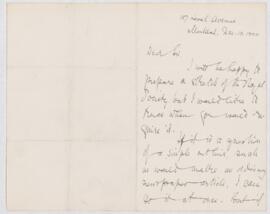 Avenue
Montreal, Dec. 10, 1900
Dear Sir
I will be happy to
prepare a sketch of the Royal
Society but I would like to
know when you would re-
quire it.
If it is a question
of a simple outline such
as would make an ordinary
newspaper article, I can
do it at once. But if